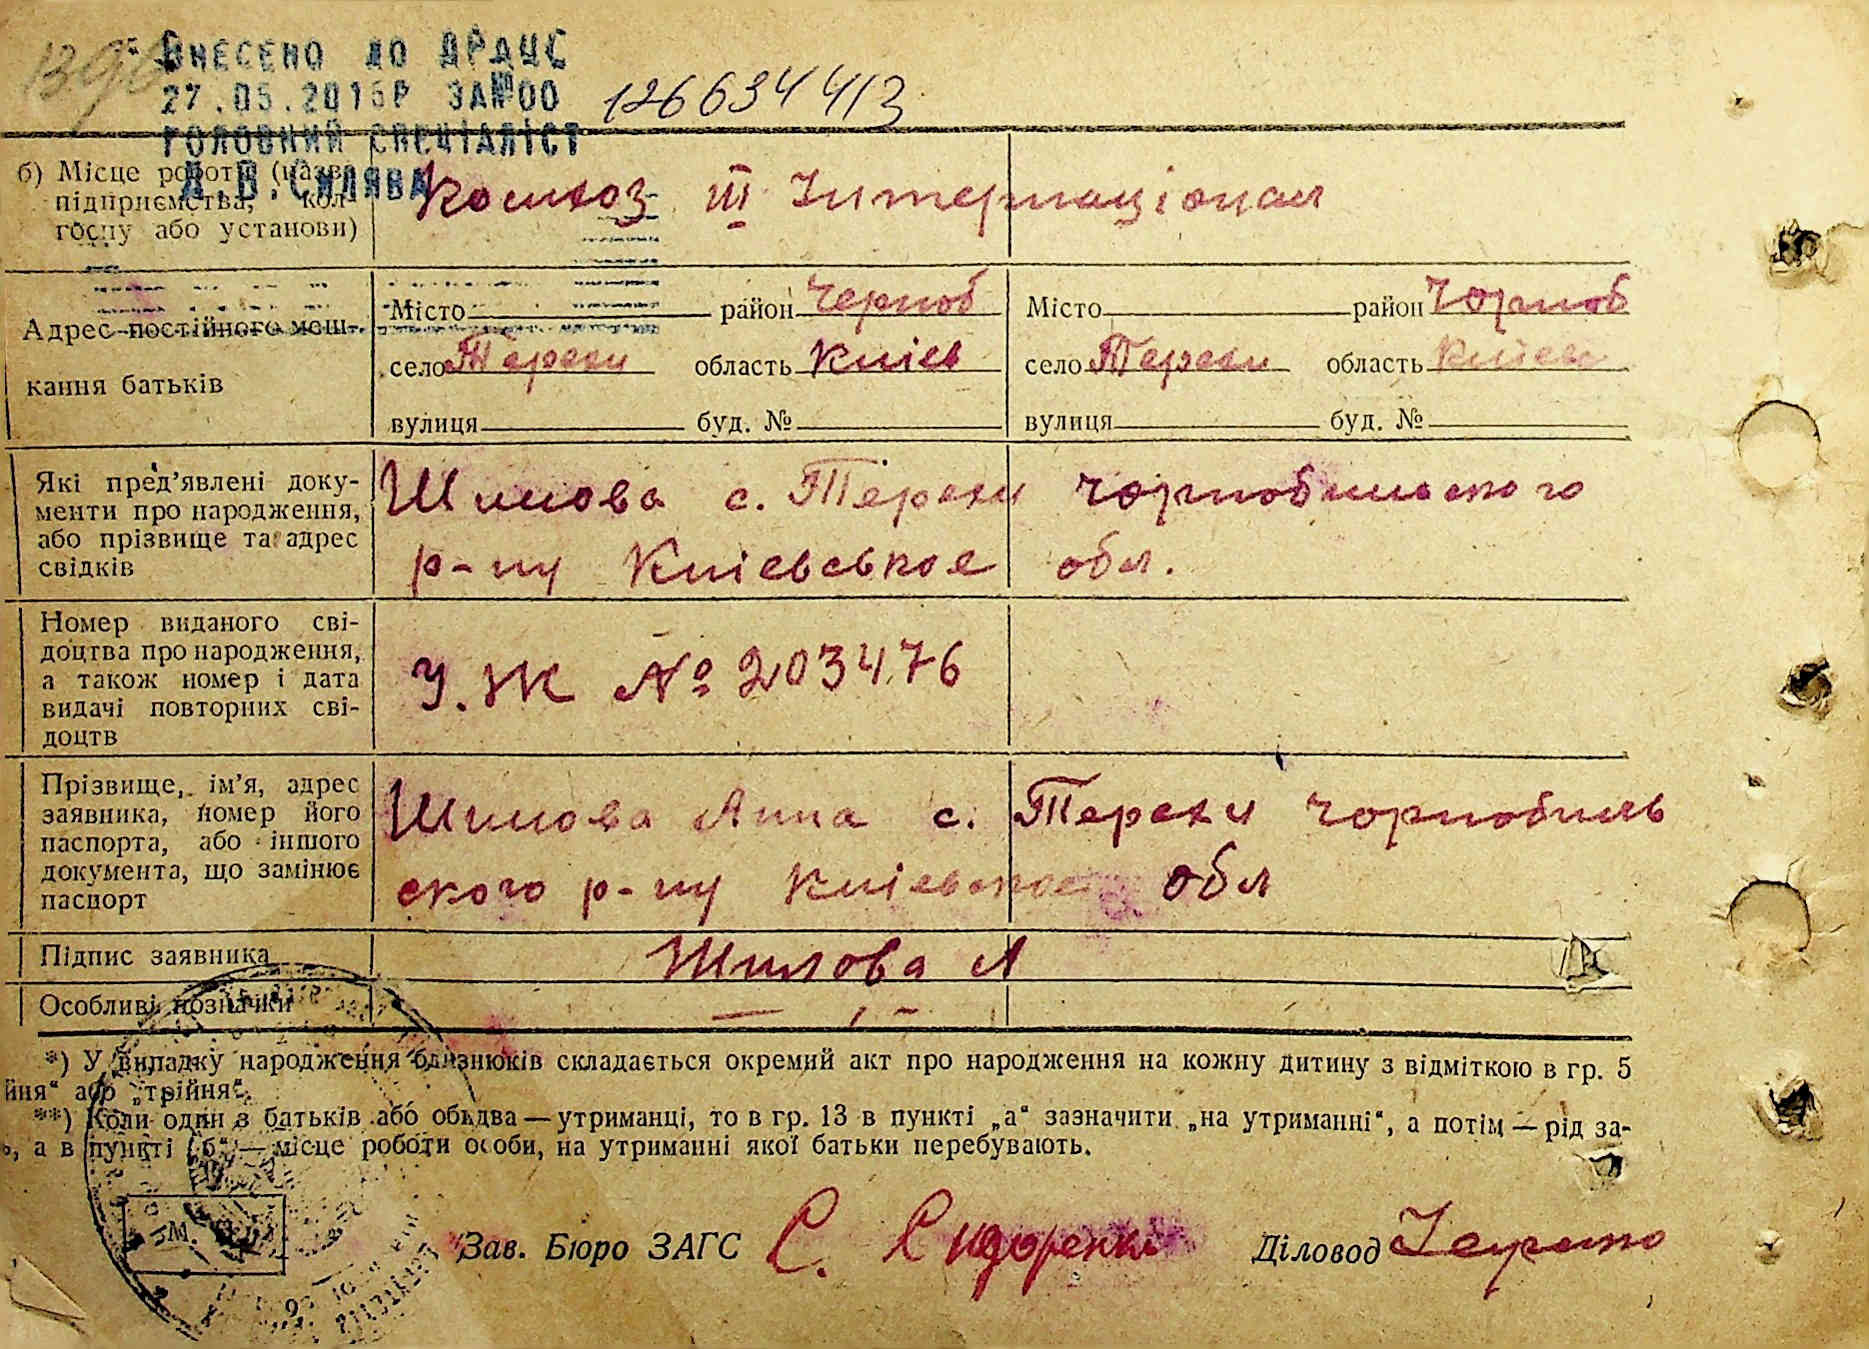 ВНЕСЕНО ДО ДРАЦС
27.05.2016Р ЗА№00 126634413
ГОЛОВНИЙ СПЕЦІАЛІСТ
Д.В.СИЛЯВА
б) Місце роботи (назва підприємства, колгоспу або установи)
Колхоз III Інтернаціонал
Адрес постійного мешкання батьків
Місто район Черноб
село Терехи область Київ
вулиця буд. №
Місто район Чорноб
село Терехи область Київ
вулиця буд. №
Які пред’явлені доку-
менти про народження,
або прізвище та адрес
свідків
Шилова с. Терехи Чорнобильского
р-ну Київської обл.
Номер виданого сві-
доцтва про народження,
а також номер і дата
видачі повторних сві-
доцтв
У.Ж № 203476
Прізвище, ім’я, адрес
заявника, номер його
паспорта, або іншого
документа, що замінює
паспорт
Шилова Анна с. Терехи Чорнобиль
ского р-ну Київської обл
Підпис заявника
Шилова А
Особливі позначки
*) У випадку народження близнюків складається окремий акт про народження на кожну дитину з відміткою в гр. 5
йня“ або „трійня“.
**) Коли один з батьків або обидва — утриманці, то в гр. 13 в пункті „а“ зазначити „на утриманні“, а потім — рід за-
, а в пункті „б“ — місце роботи особи, на утриманні якої батьки перебувають.
Зав. Бюро ЗАГС С. Сидоренко Діловод